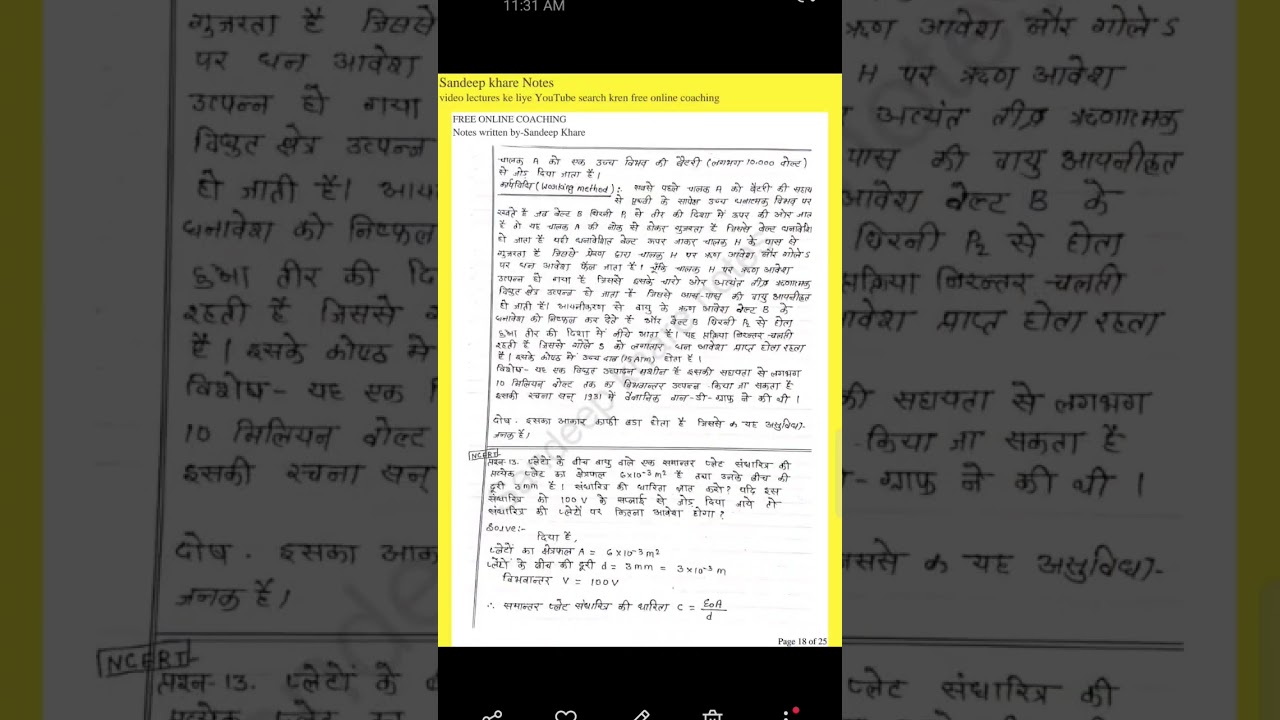 11:31 AM
Sandeep khare Notes
video lectures ke liye YouTube search kren free online coaching
FREE ONLINE COACHING
Notes written by-Sandeep Khare
चालक A को एक उच्च विभव की बैटरी (लगभग 10.000 वोल्ट)
से जोड दिया जाता है।
कार्यविधि (Working method):- सबसे पहले चालक A को बैटरी की सहाय
से पृथ्वी के सापेक्ष उच्च धनात्मक विभव पर
रखते है जब बेल्ट B घिरनी P₁ से तीर की दिशा में ऊपर की ओर जात
है तो यह चालक A की नोक से होकर गुजरता है जिससे बेल्ट धनावेशि
हो जाता है यही धनावेशित बेल्ट ऊपर जाकर चालक H के पास से
गुजरता है जिससे प्रेरण द्वारा चालक H पर ऋण आवेश और गोले S
पर धन आवेश फैल जाता है। चूँकि चालक H पर ऋण आवेश
उत्पन्न हो गया है जिससे इसके चारो ओर अत्यंत तीव्र ऋणात्मक
विद्युत क्षेत्र उत्पन्न हो जाता है जिससे आस-पास की वायु आयनीकृत
हो जाती है। आयनीकरण से वायु के ऋण आवेश बेल्ट B के
धनावेश को निष्फल कर देते है और बेल्ट B घिरनी P₂ से होता
हुआ तीर की दिशा में नीचे आता है। यह प्रक्रिया निरन्तर चलती
रहती है जिससे गोले S को लगातार धन आवेश प्राप्त होता रहता
है। इसके कोष्ठ में उच्च दाब (15 Atm) होता है।
विशेष- यह एक विद्युत उत्पादन मशीन है इसकी सहायता से लगभग
10 मिलियन वोल्ट तक का विभवान्तर उत्पन्न किया जा सकता है
इसकी रचना सन् 1931 में वैज्ञानिक वान-डी-ग्राफ ने की थी।
दोष. इसका आकार काफी बडा होता है जिससे क यह असुविधा-
जनक है।
NCERT
प्रश्न-13. प्लेटों के बीच वायु वाले एक समान्तर प्लेट संधारित्र की
प्रत्येक प्लेट का क्षेत्रफल 6×10⁻³m² है तथा उनके बीच की
दूरी 3mm है। संधारित्र की धारिता ज्ञात करो? यदि इस
संधारित्र को 100V के सप्लाई से जोड दिया जाये तो
संधारित्र की प्लेटों पर कितना आवेश होगा?
Solve:-
दिया है,
प्लेटों का क्षेत्रफल A = 6×10⁻³m²
प्लेटों के बीच की दूरी d = 3mm = 3×10⁻³ m
विभवान्तर V = 100V
∴ समान्तर प्लेट संधारित्र की धारिता C = ε₀A/d
Page 18 of 25